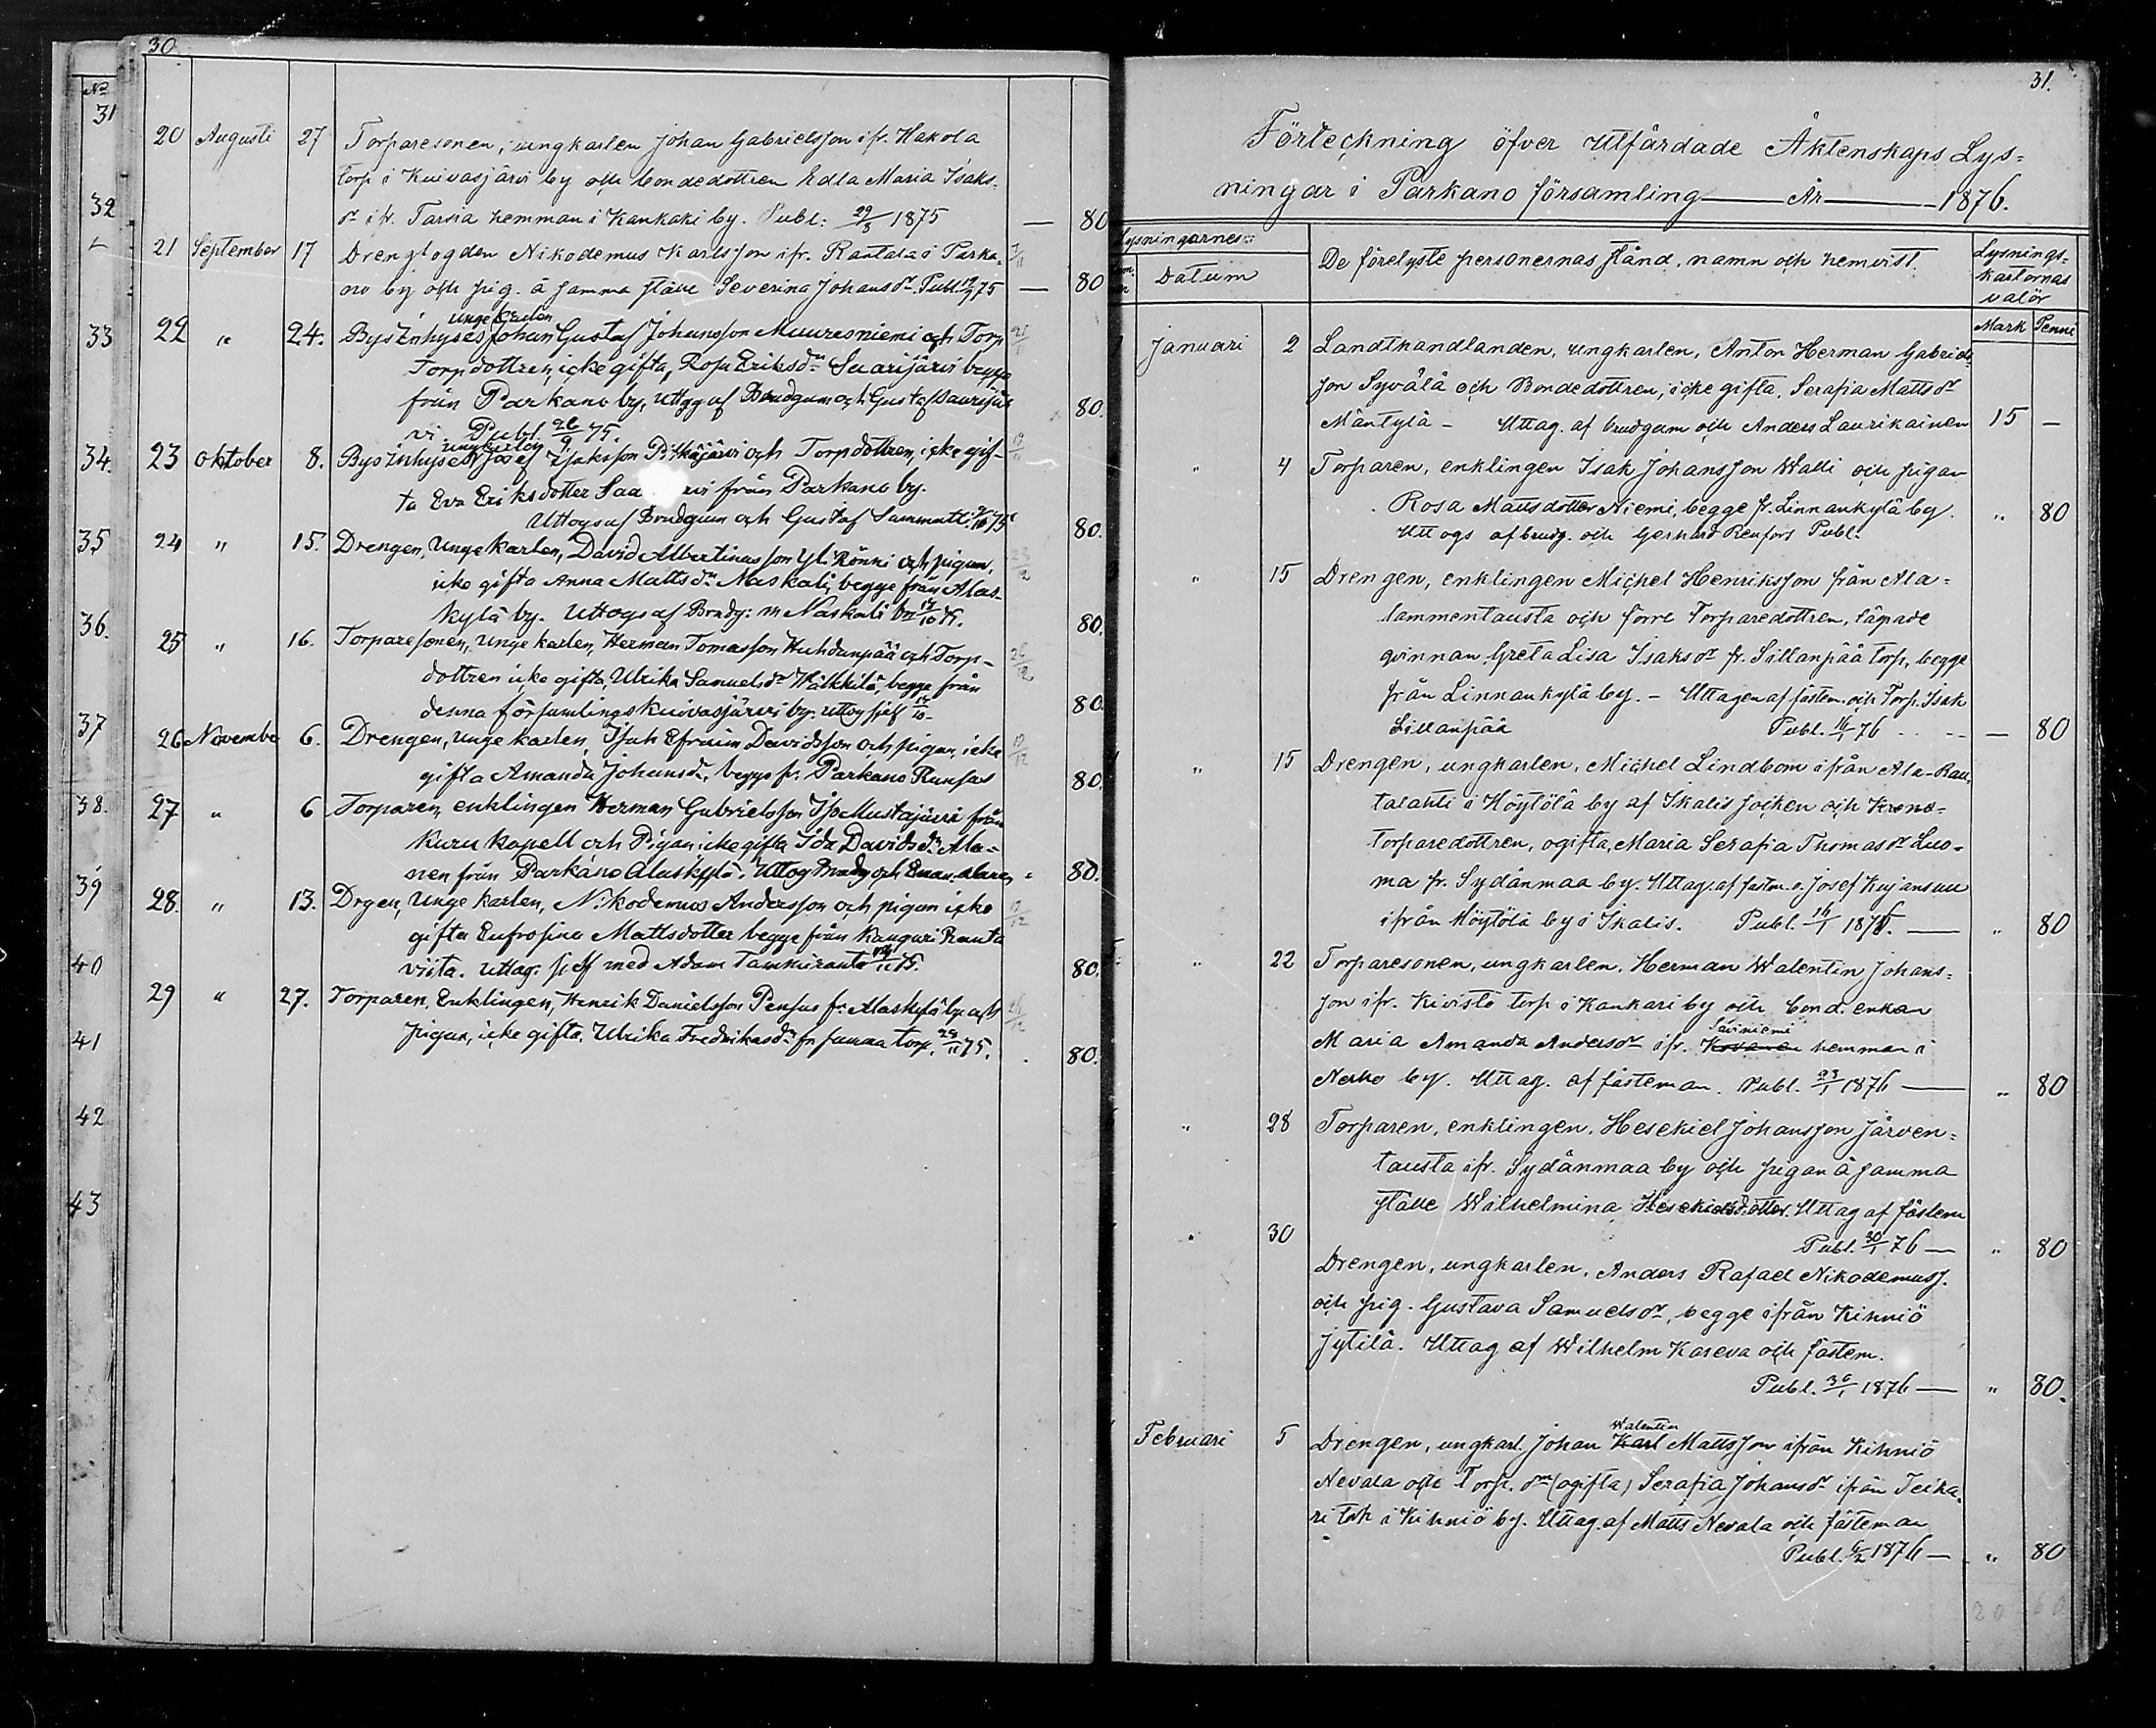 30
No
31
32
33
34.
35
36.
37
38.
39
40
41
42
43
20 Augusti 27 Torparesonen, ungkarlen Johan Gabrielsson ifr. Hakola
torp i Kuivasjärvi by och bondedottren Edla Maria Isaks-
dr ifr. Tarsia hemman i Kankari by. Publ: 29/8 1875 — 80
21 September 17 Drengtogden Nikodemus Karlsson ifr. Rantala i Parka-
no by och pig. å samma ställe Severina Johansdr. Publ. 19/9 75 — 80
unge karlen
22 " 24. Bys Inhyses Johan Gustaf Johansson Muuresniemi och Torp
Torpdottren, icke gifta, Rosa Eriksdr Saarijärvi begge
från Parkano by, uttog af Brudgum och Gustaf Saarijär
vi Publ. 26/9 75. 80.
ungkarlen
23 Oktober 8. Bys Inhyses Josef Isaksson Pitkäjärvi och Torpdottren, icke gif-
ta Eva Eriksdotter Saa rvi från Parkano by.
Uttogs af Brudgum och Gustaf Sammatti. 75 80.
24 " 15. Drengen, Unge karlen, David Albertinasson Yli Rönni och pigan,
icke gifta Anna Mattsdr Naskali, begge från Alas-
kylä by. Uttogs af Brudg: m Naskali 17/10 75. 80.
25 " 16. Torparesonen, Unge karlen, Herman Tomasson Huhdanpää och Torp-
dottren icke gifta, Ulrika Samuelsdr Wälkkilä, begge från
denna församlings Kuivasjärvi by. uttog sjelf 17/10 80.
26 November 6. Drengen, Unge karlen, Isak Efraim Davidsson och pigan, icke
gifta Amanda Johansdr, begge fr. Parkano Runsas 80.
27 " 6 Torparen, enklingen Herman Gabrielsson Iso Mustajärvi från
Kuru Kapell och Pigan icke gifta Ida Davidsdr Ala-
nen från Parkano Alaskylä. Uttog Brudg och Eman. Alanen 80.
28. " 13. Drgen, Unge karlen, Nikodemus Andersson och pigan icke
gifta Eufrosina Mattsdotter begge från Kanguri Ranta
viita. Uttag: sjelf med Adam Tamkiranta 14/11 75. 80.
29 " 27. Torparen, Enklingen, Henrik Danielsson Pensas fr: Alaskylä by och
pigan, icke gifta, Ulrika Fredriksdr fr samma torp. 28/11 75. 80.
31.
Förteckning öfver Utfärdade Äktenskaps Lys-
ningar i Parkano församling — År — 1876.
Lysningarnes
Datum
De förelyste personernas stånd, namn och hemvist.
Lysnings-
kartornas
valör
Mark Penni
Januari 2 Landthandlanden, ungkarlen, Anton Herman Gabriels-
son Syvälä och Bondedottren, icke gifta, Serafia Mattsdr
Mäntylä – Uttag. af brudgum och Anders Laurikainen 15 —
" 4 Torparen, enklingen Isak Johansson Walli och pigan
Rosa Mattsdotter Niemi, begge fr. Linnankylä by.
Uttogs af brudg. och Gerhard Renfors Publ. " 80
" 15 Drengen, enklingen Michel Henriksson från Ala-
lammentausta och förre Torparedottren, lägrade
qvinnan Greta Lisa Isaksdr fr. Sillanpää torp, begge
från Linnankylä by. – Uttagen af fästem. och Torp. Isak
Sillanpää Publ. 16/1 76 — 80
" 15 Drengen, ungkarlen, Michel Lindbom ifrån Ala-Rau
talahti i Höytölä by af Ikalis socken och Krono-
torparedottren, ogifta, Maria Serafia Thomasdr Luo-
ma fr. Sydänmaa by. Uttag. af fästm. o. Josef Kujansuu
ifrån Höytölä by i Ikalis. Publ. 16/1 1876. — " 80
" 22 Torparesonen, ungkarlen, Herman Walentin Johans-
son ifr. Kivistö torp i Kankari by och bond. enkan
Saviniemi
Maria Amanda Andersdr ifr. Kovanen hemman i
Nerko by. Uttag. af fästeman. Publ. 23/1 1876 — " 80
" 28 Torparen, enklingen, Hesekiel Johansson Järven-
tausta ifr. Sydänmaa by och pigan å samma
ställe Wilhelmina Hesekielsdotter. Uttag af fästem
Publ. 30/1 76 — " 80
" 30 Drengen, ungkarlen, Anders Rafael Nikodemuss.
och pig. Gustava Samuelsdr, begge ifrån Kihniö
Jytilä. Uttag af Wilhelm Kareva och fästem.
Publ. 30/1 1876 — " 80.
Walentin
Februari 5 Drengen, ungkarl. Johan Karl Mattsson ifrån Kihniö
Nevala och Torp. drn (ogifta) Serafia Johansdr ifrån Teika-
ri torp i Kihniö by. Uttag. af Matts Nevala och fästeman
Publ. 6/2 1876 — " 80
20 60